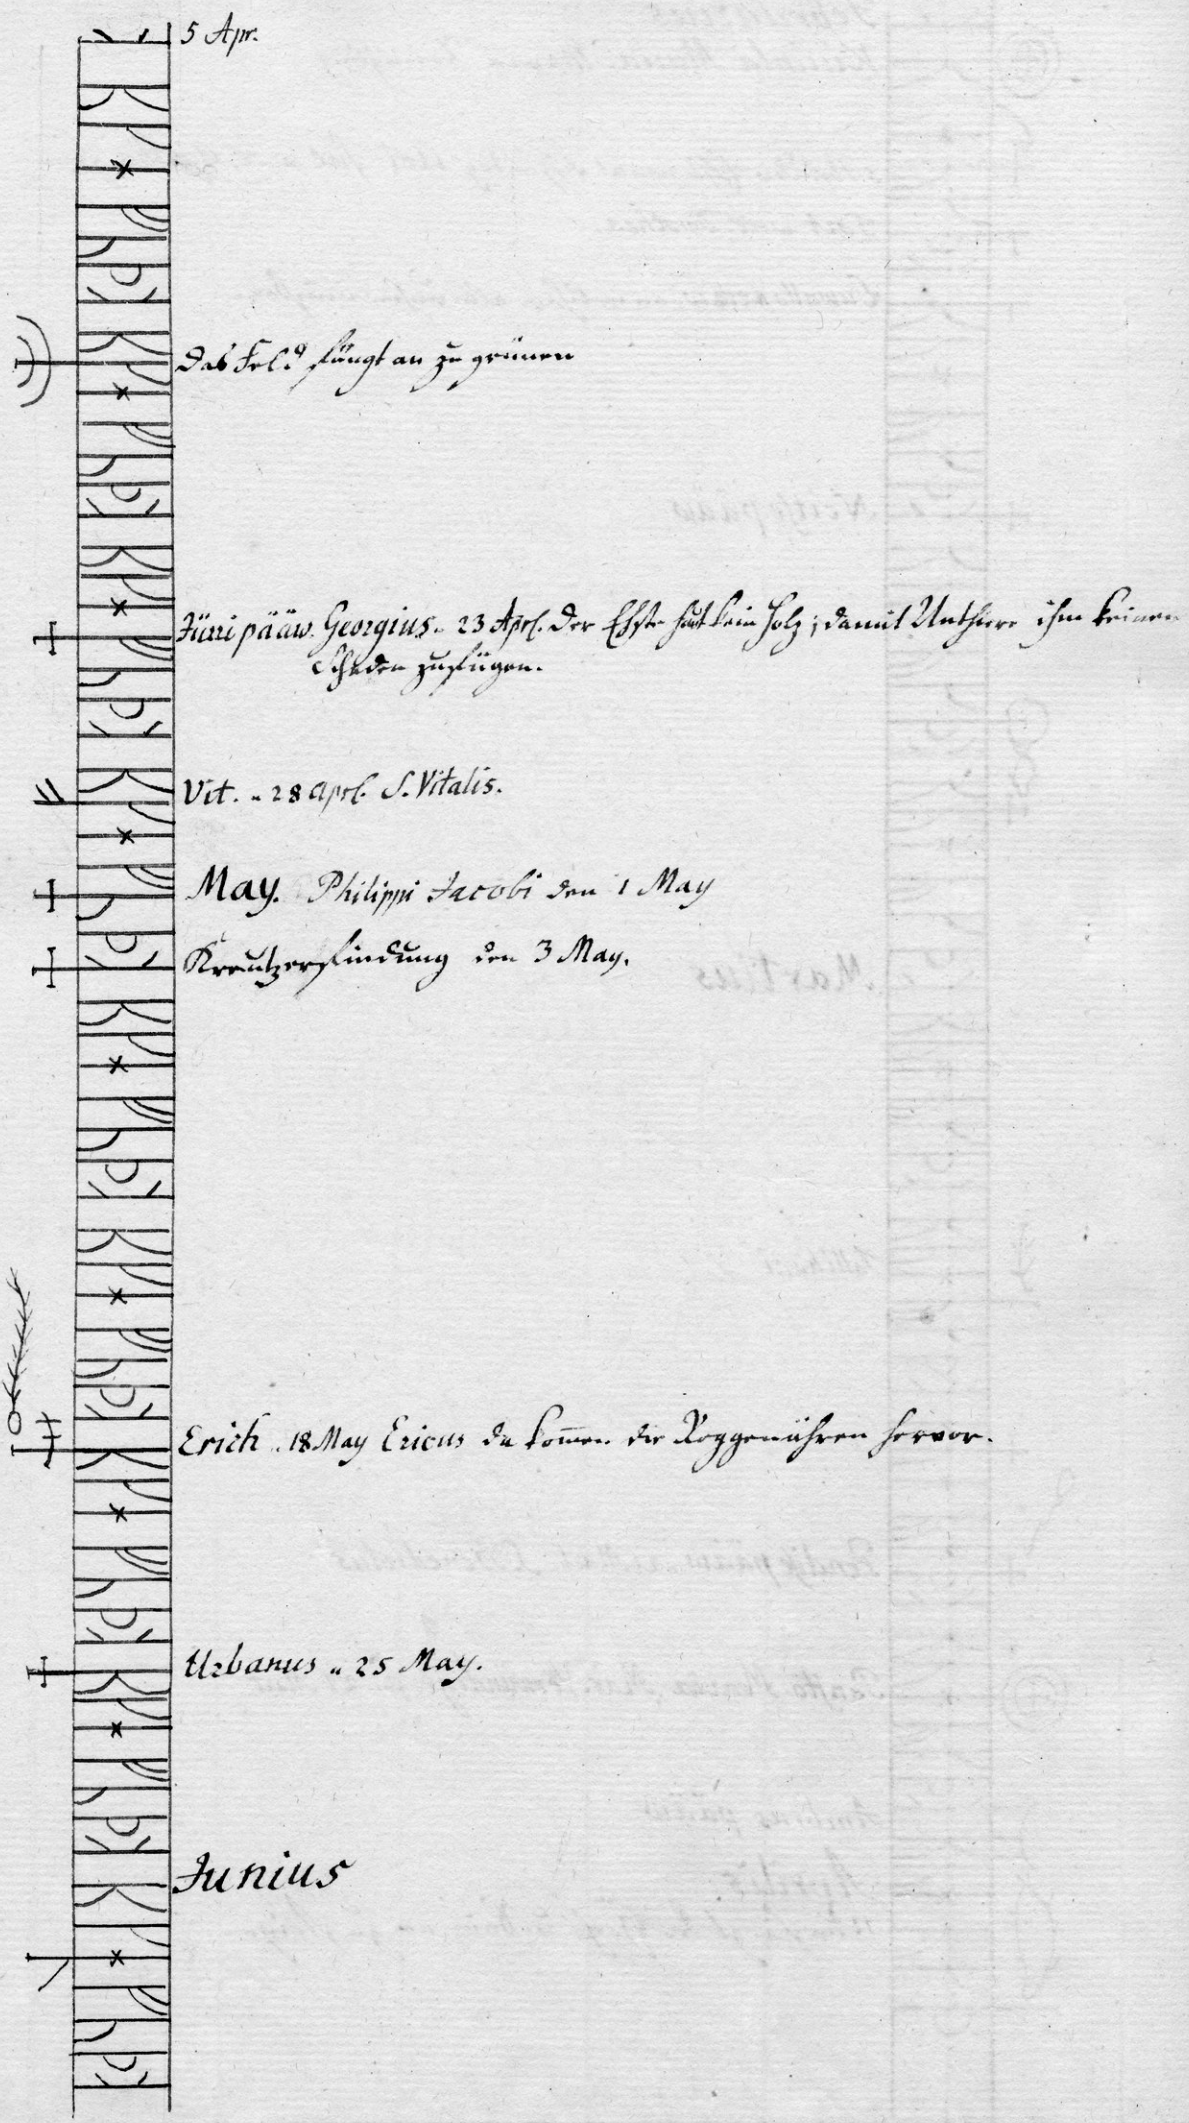 5 Apr.
Das Feld fängt an zu grünen
Jürri pääw. Georgius. 23 Aprl. Der Ehste haut kein Holz; damit Unthiere ihm keinen
Schaden zufügen.
Vit. 28 Aprl. S. Vitalis.
May. Philippi Jacobi den 1 May
Kreutzerfindung den 3 May.
Erich. 18 May Ericus da kom̄en die Roggenähren hervor.
Urbanus 25 May.
Junius